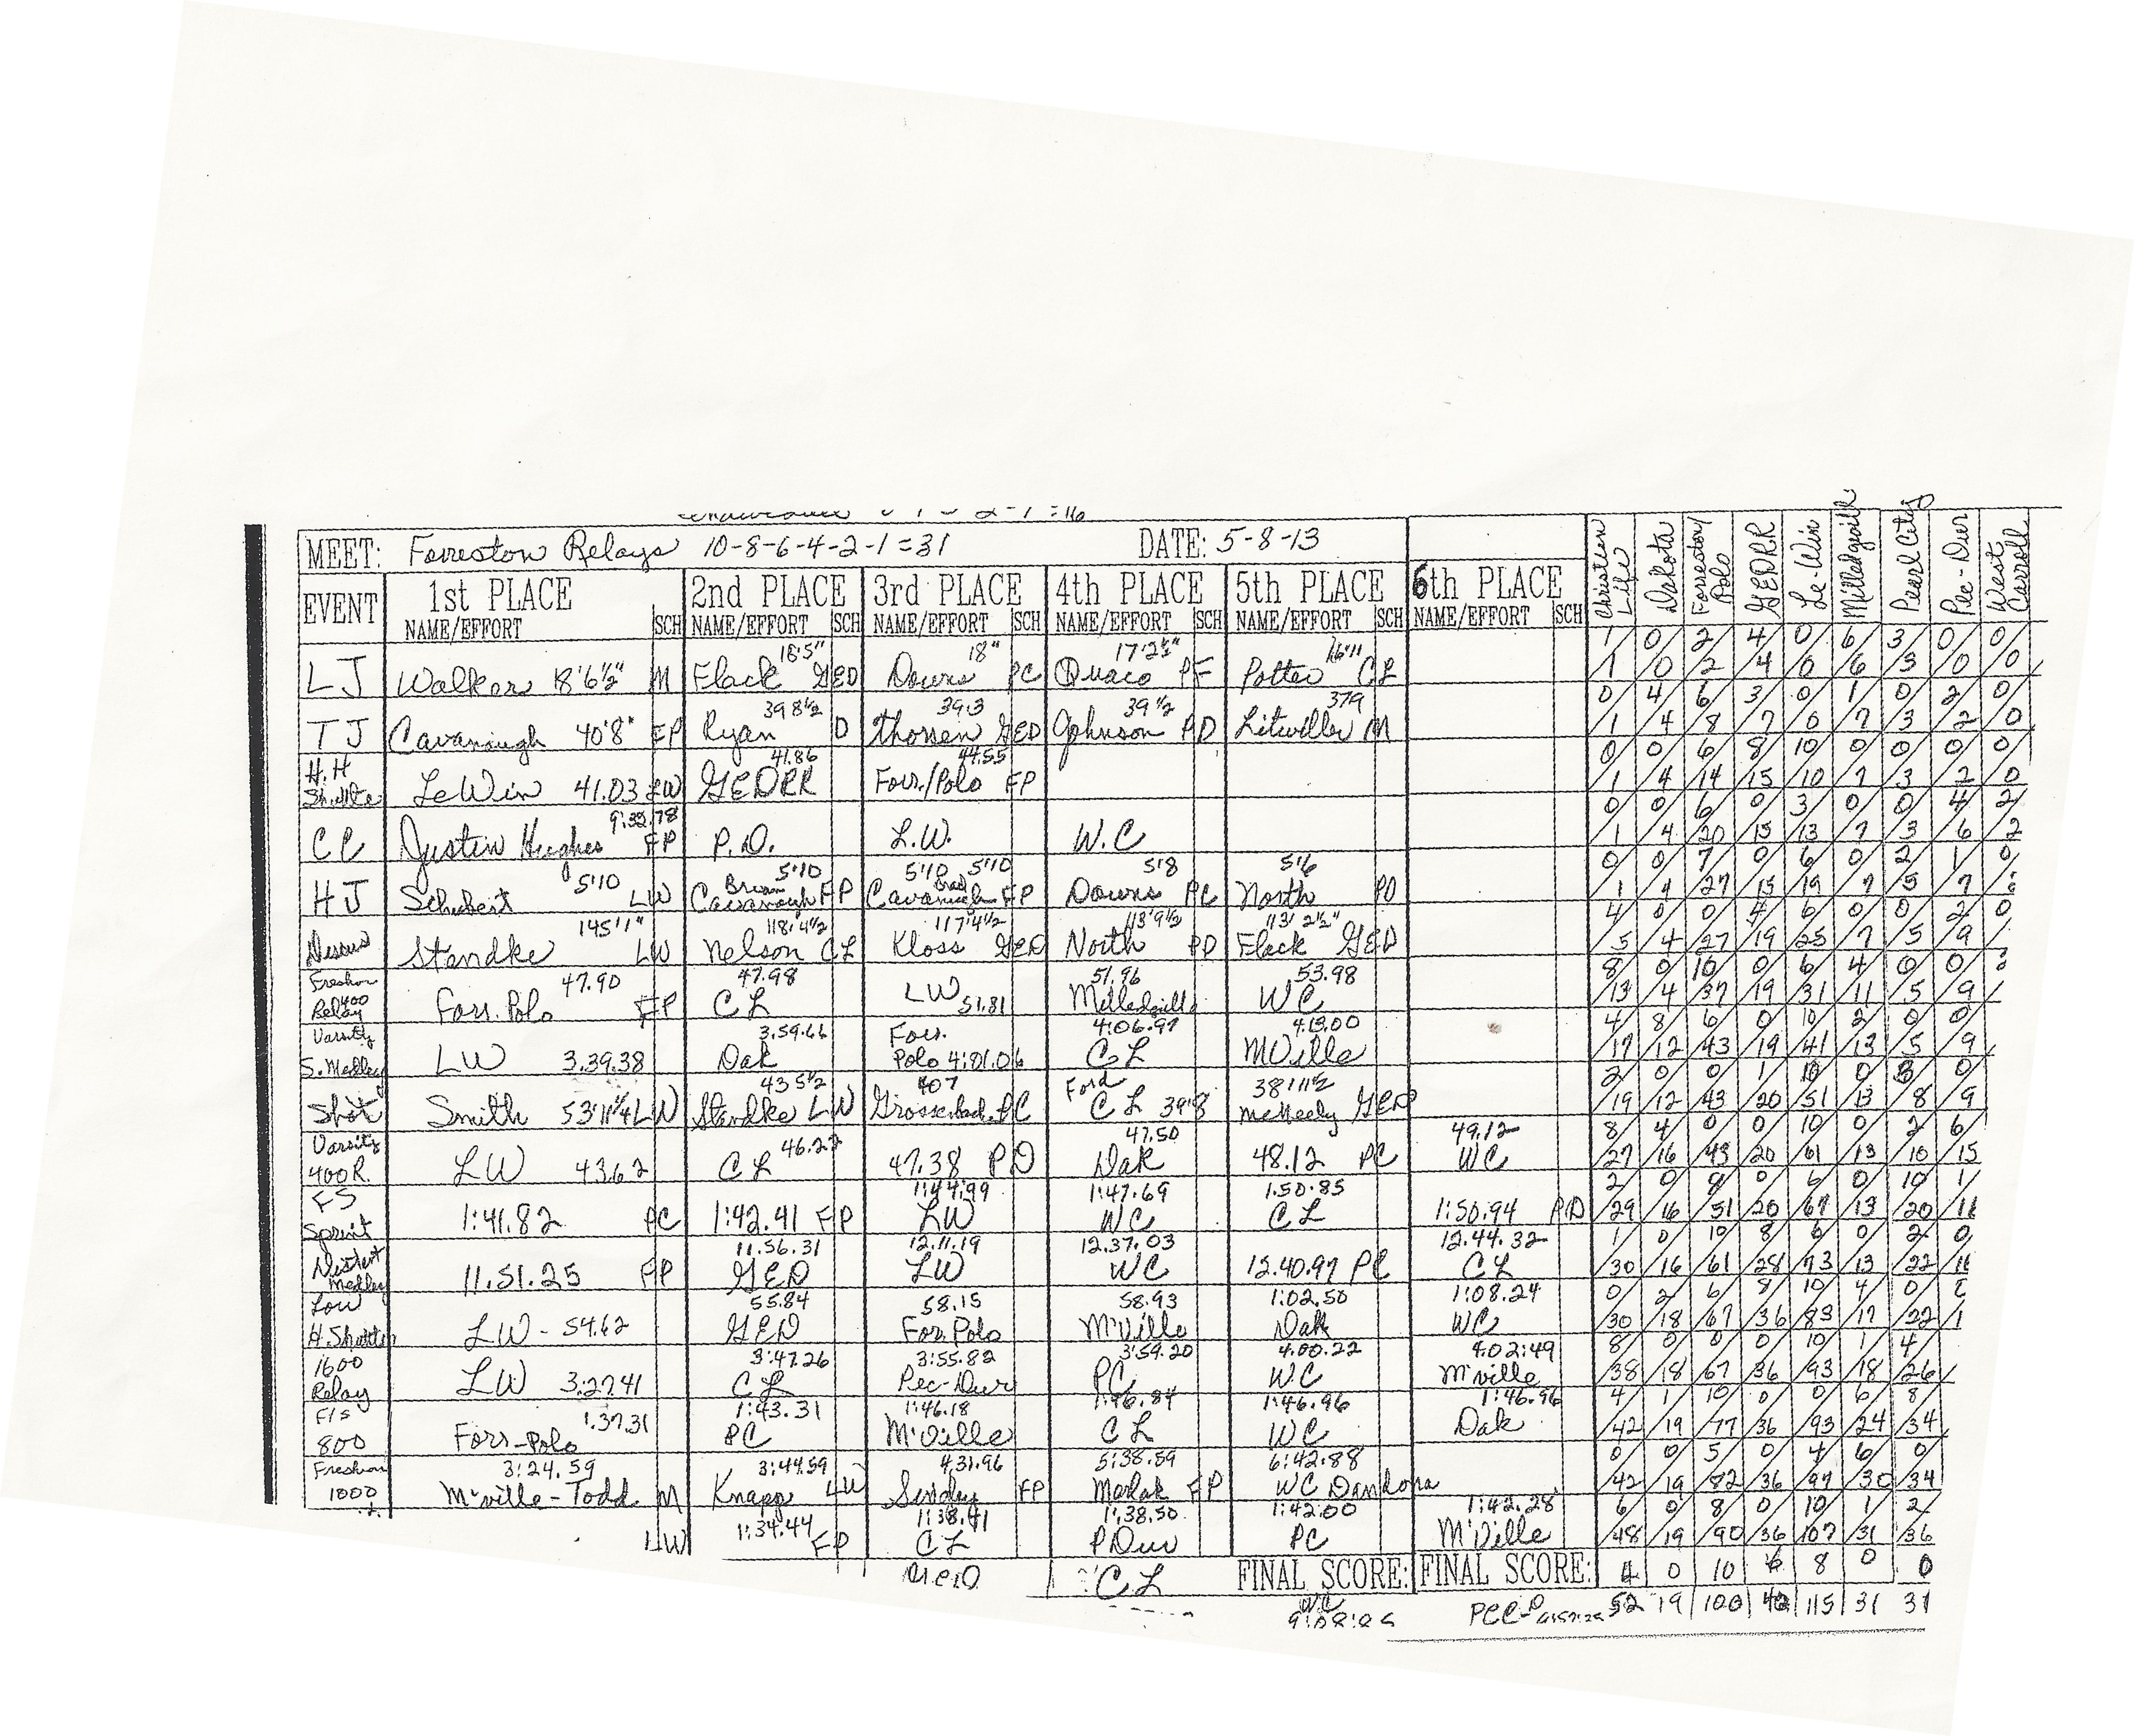 MEET: Forreston Relays 10-8-6-4-2-1=31 DATE: 5-8-13
Christian Life Dakota Forreston/Polo GEDRR Le-Win Milledgeville Pearl City Pec-Dur West Carroll
EVENT 1st PLACE 2nd PLACE 3rd PLACE 4th PLACE 5th PLACE 6th PLACE
NAME/EFFORT SCH NAME/EFFORT SCH NAME/EFFORT SCH NAME/EFFORT SCH NAME/EFFORT SCH NAME/EFFORT SCH
1 0 2 4 0 6 3 0 0
LJ Walker 18'6½" M Flack 18'5" GED Downs 18" PC 17'2½" Potter 16'11 CL
1 0 2 4 0 6 3 0 0
0 4 6 3 0 1 0 2 0
TJ Cavanaugh 40'8" FP Ryan 39 8½ D Thorsen 39.3 GED Johnson 39 ½ PD Litwiller 379 M
1 4 8 7 0 7 3 2 0
0 0 6 8 10 0 0 0 0
H.H LeWin 41.03 LW GEDRR 41.86 Forr./Polo 44.55 FP
1 4 14 15 10 7 3 2 0
0 0 6 0 3 0 0 4 2
CC Justin Hughes 9:32.78 FP P.D. L.W. W.C
1 4 20 15 13 7 3 6 2
0 0 7 0 6 0 2 1 0
HJ Schubert 5'10 LW Cavanaugh 5'10 FP Brad Cavanaugh 5'10 5'10 FP Downs 5'8 PC North 5'6 PD
1 4 27 15 19 7 5 7
4 0 0 4 6 0 0 2 0
Discus Stendke 145'1" LW Nelson 118'4½ CL Kloss 117'4½ GED North 113'9½ PD Flack 113'2½" GED
5 4 27 19 25 7 5 9
8 0 10 0 6 4 0 0
400 Relay Forr. Polo 47.90 FP CL 47.98 LW 51.81 Milledgeville 51.96 WC 53.98
13 4 37 19 31 11 5 9
4 8 6 0 10 2 0 0
Varsity S. Medley LW 3.39.38 Dak 3.59.66 Forr. Polo 4:01.06 CL 4:06.97 MVille 4:13.00
17 12 43 19 41 13 5 9
2 0 0 1 10 0 3 0
Shot Smith 53'11¼ LW Stendke 43 5½ LW 407 PC Ford CL 39'8 McNeely 38'11½ GED
19 12 43 20 51 13 8 9
8 4 0 0 10 0 2 6
Varsity 400 R. LW 43.62 CL 46.22 47.38 PD Dak 47.50 48.12 PC WC 49.12
27 16 43 20 61 13 10 15
2 0 8 0 6 0 10 1
FS Sprint 1:41.82 PC 1:42.41 FP LW 1:44.99 WC 1:47.69 CL 1:50.85 1:50.94 PD
29 16 51 20 67 13 20 16
1 0 10 8 6 0 2 0
Medley 11.51.25 FP GED 11.56.31 LW 12.11.19 WC 12.37.03 12.40.97 PC CL 12.44.32
30 16 61 28 73 13 22 16
0 2 6 8 10 4 0
Low H. Shuttle LW - 54.62 GED 55.84 For. Polo 58.15 M'Ville 58.93 Dak 1:02.50 WC 1:08.24
30 18 67 36 83 17 22
8 0 0 0 10 1 4
1600 Relay LW 3:27.41 CL 3:47.26 Pec-Dur 3:55.82 PC 3:59.20 WC 4:00.22 M'ville 4:02:49
38 18 67 36 93 18 26
4 1 10 0 0 6 8
F/S 800 Forr-Polo 1:37.31 PC 1:43.31 M'Ville 1:46.18 CL 1:46.84 WC 1:46.96 Dak 1:46.96
42 19 77 36 93 24 34
0 0 5 0 4 6 0
1000 M'ville-Todd 3:24.59 M Knapp 3:44.59 LW 4:31.96 FP 5:38.59 FP WC 6:42.88
42 19 82 36 97 30 34
6 0 8 0 10 1 2
LW 1:34.44 FP CL 1:38.41 P Dur 1:38.50 PC 1:42.00 M'Ville 1:42.28
48 19 90 36 107 31 36
CL FINAL SCORE: FINAL SCORE: 4 0 10 6 8 0 0
WC 52 19 100 42 115 31 31